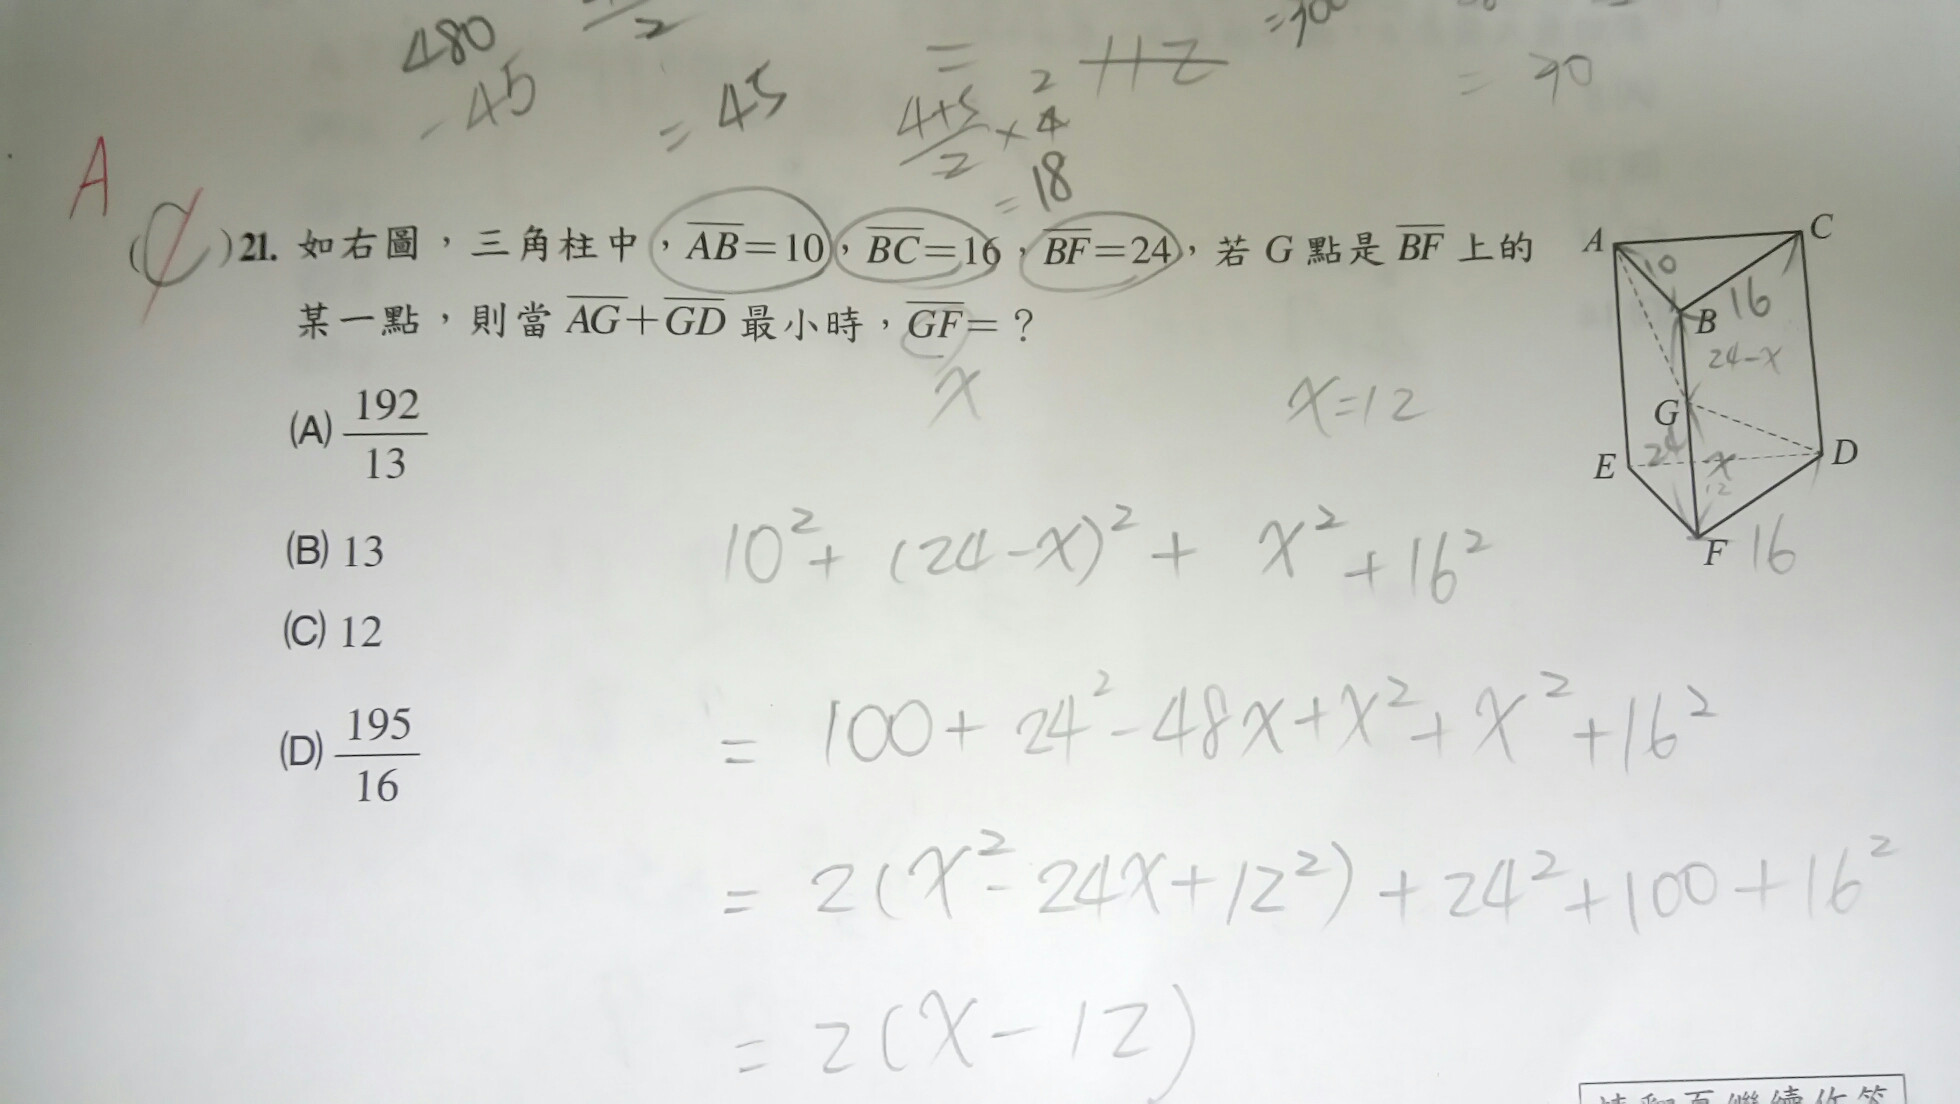 480
2
=
=70
- 45
= 45
4+5/2 × 4
2
112
= 70
= 18
A
(C)21. 如右圖，三角柱中，AB=10，BC=16，BF=24，若 G 點是 BF 上的
某一點，則當 AG+GD 最小時，GF=？
x
x=12
(A) 192/13
(B) 13
(C) 12
(D) 195/16
A
C
10
B
16
24-x
G
24
x
12
E
D
F
16
10²+ (24-x)² + x² +16²
= 100+ 24²-48x+x²+x²+16²
= 2(x²-24x+12²)+24²+100+16²
= 2(x-12)
請翻頁繼續作答